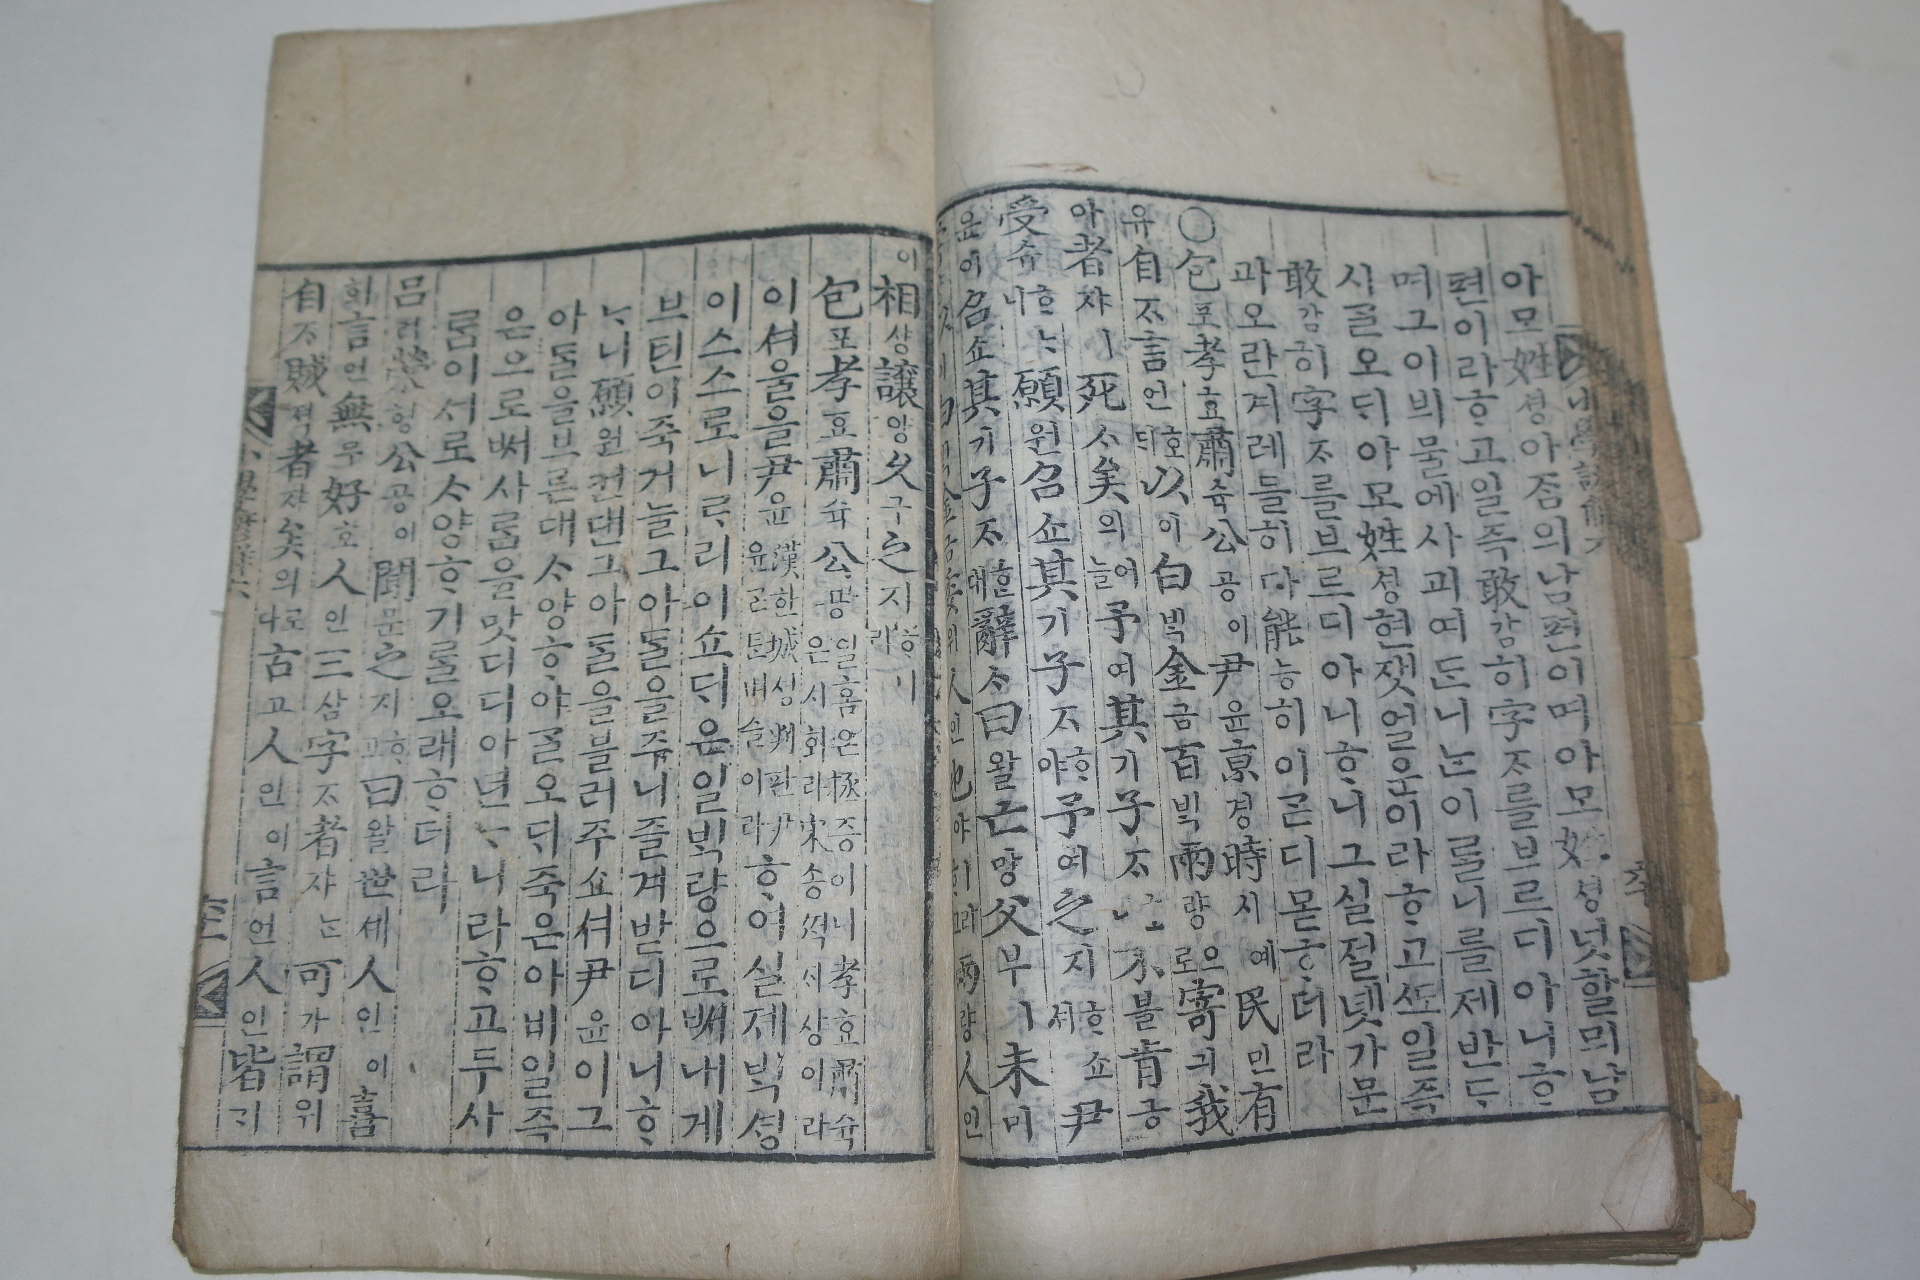 아모姓셩아자븨남편이며아모姓셩넛할믜남
편이라ᄒᆞ고일즉敢감히字ᄌᆞ를브르디아니ᄒᆞ
며그아븨물에사괴여ᄃᆞ니ᄂᆞᆫ이ᄅᆞᆯ니를제반ᄃᆞ
시ᄀᆞᆯ오ᄃᆡ아모姓셩현잿얼운이라ᄒᆞ고ᄯᅩ일즉
敢감히字ᄌᆞ를브르디아니ᄒᆞ니그실절넷가문
과오란겨레들히다能능히이ᄀᆞᆮ디몯ᄒᆞ더라
○包포孝효肅슉公공이尹윤京경時시예民민有
유自ᄌᆞ言언호ᄃᆡ以이白ᄇᆡᆨ金금百ᄇᆡᆨ兩량으로寄긔我
아者쟈ㅣ死ᄉᆞ矣의어늘予여其기子ᄌᆞᄒᆞ니不블肯긍
受슈ᄒᆞᄂᆞ니願원召쇼其기子ᄌᆞᄒᆞ야予여之지ᄒᆞ쇼셔尹
윤이召쇼其기子ᄌᆞᄒᆞᆫ대辭ᄉᆞ曰왈亡망父부ㅣ未미
人인也야ㅣ라ᄒᆞ고兩량人인
이相샹讓양久구之지ᄒᆞ라ㅣ
包포孝효肅슉公공일홈은拯증이니孝효肅슉은시회라宋송적셰샹이라
이셔울을尹윤漢한城셩判판尹윤ᄀᆞᄐᆞᆫ벼슬이라ᄒᆞ여실제ᄇᆡᆨ셩
이스스로니ᄅᆞ리이쇼ᄃᆡ은일ᄇᆡᆨ량으로ᄡᅥ내게
브틴이죽거늘그아ᄃᆞᆯ을주니즐겨받디아니ᄒᆞ
ᄂᆞ니願원컨댄그아ᄃᆞᆯ을블러주쇼셔尹윤이그
아ᄃᆞᆯ을브른대ᄉᆞ양ᄒᆞ야ᄀᆞᆯ오ᄃᆡ죽은아비일즉
은으로ᄡᅥ사ᄅᆞᆷ을맛디디아녇ᄂᆞ니라ᄒᆞ고두사
ᄅᆞᆷ이서로ᄉᆞ양ᄒᆞ기ᄅᆞᆯ오래ᄒᆞ더라
呂려滎형公공이聞문之지ᄒᆞ고曰왈世셰人인이喜
희言언無무好호人인三삼字ᄌᆞ者쟈ᄂᆞᆫ可가謂위
自ᄌᆞ賊적者쟈矣의로다古고人인이言언人인皆ᄀᆡ